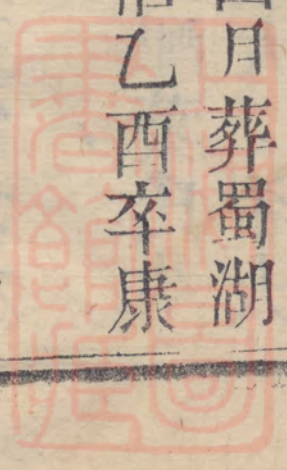 月葬蜀湖
乙酉卒康